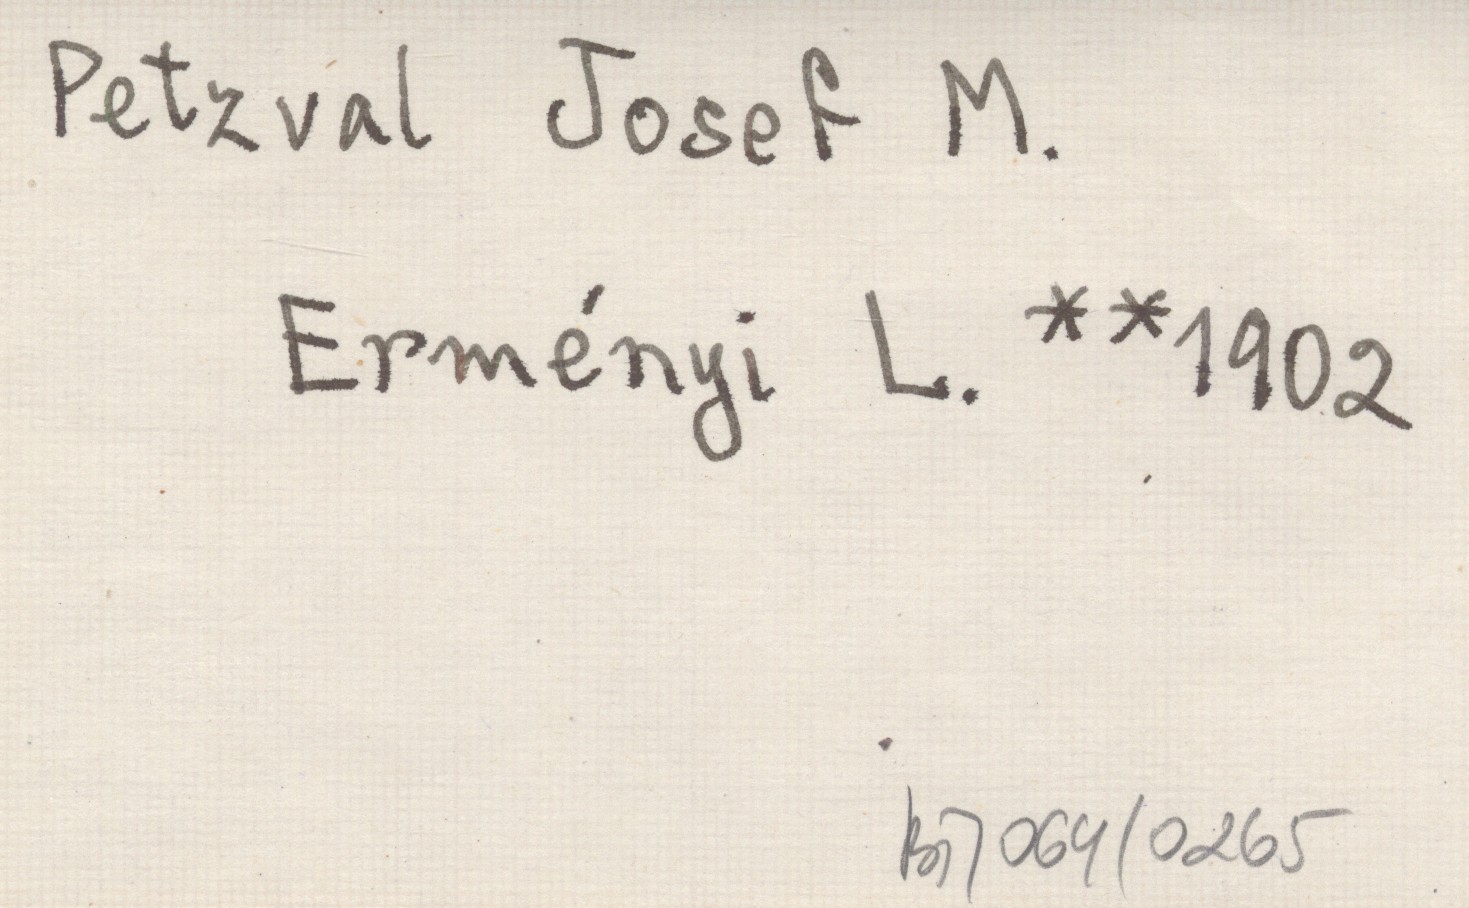 Petzval Josef M.
Erményi L. **1902
064/0265